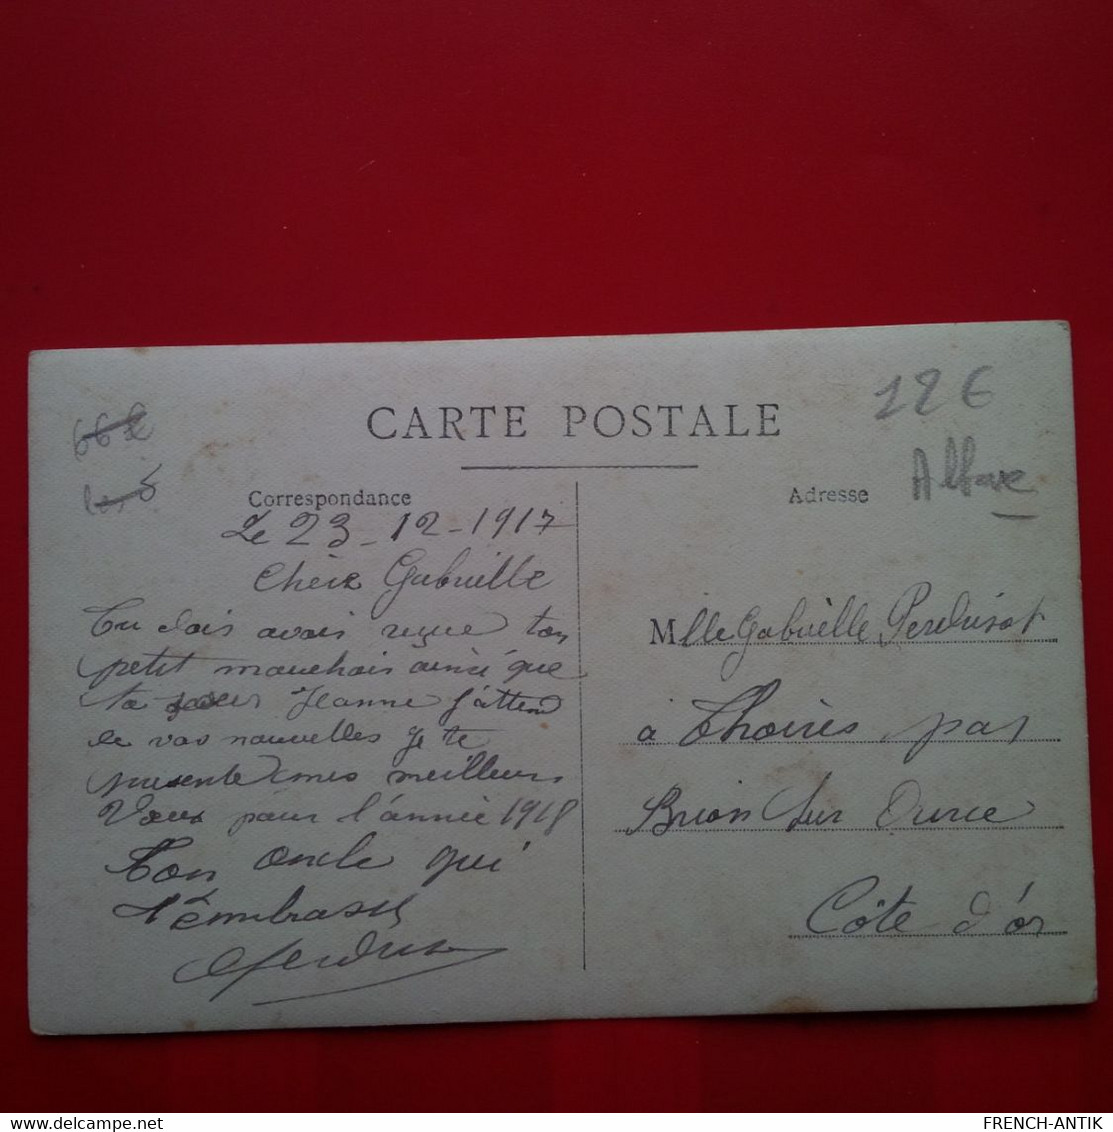 CARTE POSTALE
12 €
Correspondance
Adresse
Le 23-12-1917
Chère Gabrielle
Tu dois avoir reçue ton
petit mouchoir ainsi que
ta soeur Jeanne j'attend
de vos nouvelles je te
presente mes meilleurs
Vœux pour l'année 1918
Ton oncle qui
t'embrasse
Perdrisot
Mlle Gabrielle Perdrisot
à Thoires par
Brion sur Ource
Côte d'or
FRENCH-ANTIK
delcampe.net